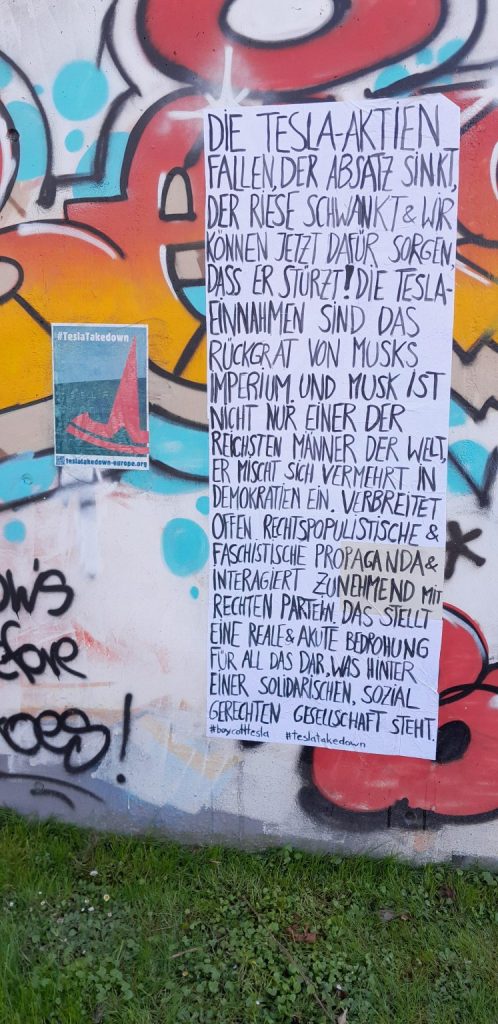 DIE TESLA-AKTIEN
FALLEN, DER ABSATZ SINKT,
DER RIESE SCHWANKT & WIR
KÖNNEN JETZT DAFÜR SORGEN,
DASS ER STÜRZT! DIE TESLA-
EINNAHMEN SIND DAS
RÜCKGRAT VON MUSKS
IMPERIUM. UND MUSK IST
NICHT NUR EINER DER
REICHSTEN MÄNNER DER WELT,
ER MISCHT SICH VERMEHRT IN
DEMOKRATIEN EIN. VERBREITET
OFFEN RECHTSPOPULISTISCHE &
FASCHISTISCHE PROPAGANDA &
INTERAGIERT ZUNEHMEND MIT
RECHTEN PARTEIN. DAS STELLT
EINE REALE & AKUTE BEDROHUNG
FÜR ALL DAS DAR, WAS HINTER
EINER SOLIDARISCHEN, SOZIAL
GERECHTEN GESELLSCHAFT STEHT.
#boycotttesla #teslatakedown
#TeslaTakedown
teslatakedown-europe.org